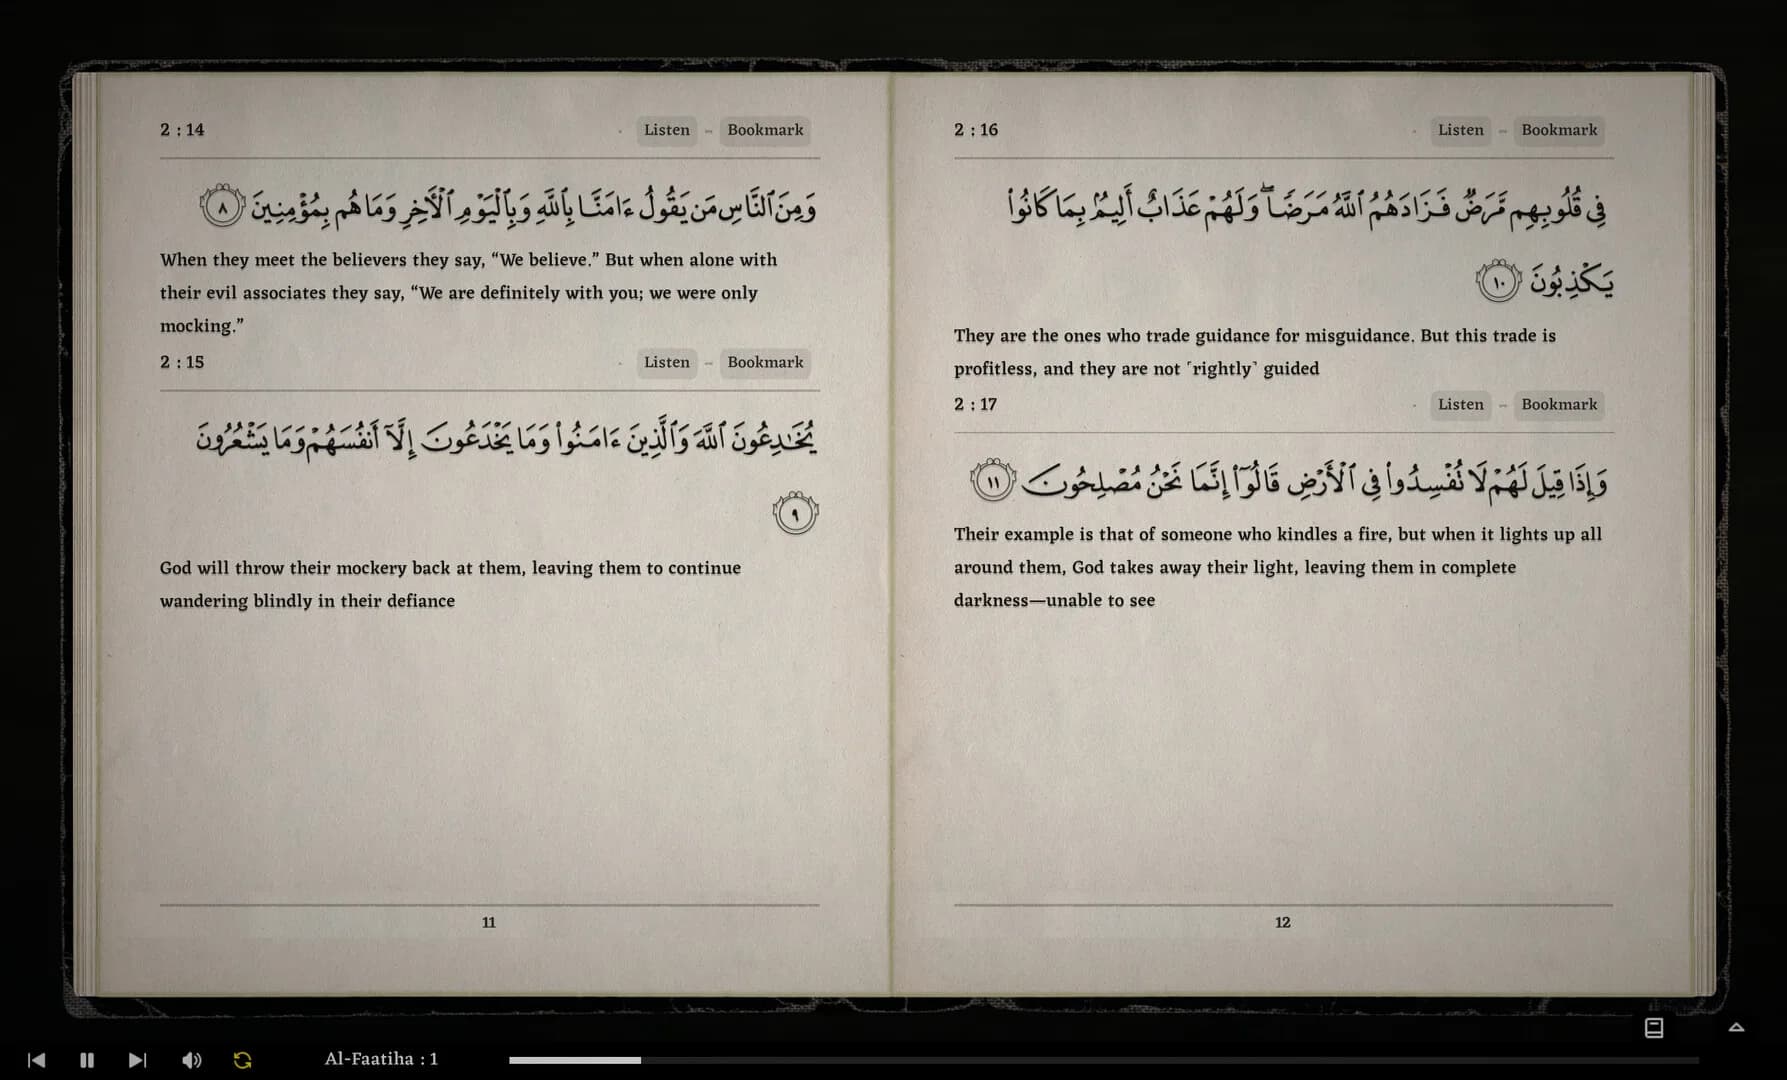 2 : 14
Listen
Bookmark
وَمِنَ ٱلنَّاسِ مَن يَقُولُ ءَامَنَّا بِٱللَّهِ وَبِٱلْيَوْمِ ٱلْأَخِرِ وَمَا هُم بِمُؤْمِنِينَ ٨
When they meet the believers they say, “We believe.” But when alone with
their evil associates they say, “We are definitely with you; we were only
mocking.”
2 : 15
Listen
Bookmark
يُخَـٰدِعُونَ ٱللَّهَ وَٱلَّذِينَ ءَامَنُوا۟ وَمَا يَخْدَعُونَ إِلَّآ أَنفُسَهُمْ وَمَا يَشْعُرُونَ
٩
God will throw their mockery back at them, leaving them to continue
wandering blindly in their defiance
11
2 : 16
Listen
Bookmark
فِى قُلُوبِهِم مَّرَضٌ فَزَادَهُمُ ٱللَّهُ مَرَضًا ۖ وَلَهُمْ عَذَابٌ أَلِيمٌۢ بِمَا كَانُوا۟
يَكْذِبُونَ ١٠
They are the ones who trade guidance for misguidance. But this trade is
profitless, and they are not ˹rightly˺ guided
2 : 17
Listen
Bookmark
وَإِذَا قِيلَ لَهُمْ لَا تُفْسِدُوا۟ فِى ٱلْأَرْضِ قَالُوٓا۟ إِنَّمَا نَحْنُ مُصْلِحُونَ ١١
Their example is that of someone who kindles a fire, but when it lights up all
around them, God takes away their light, leaving them in complete
darkness—unable to see
12
Al-Faatiha : 1